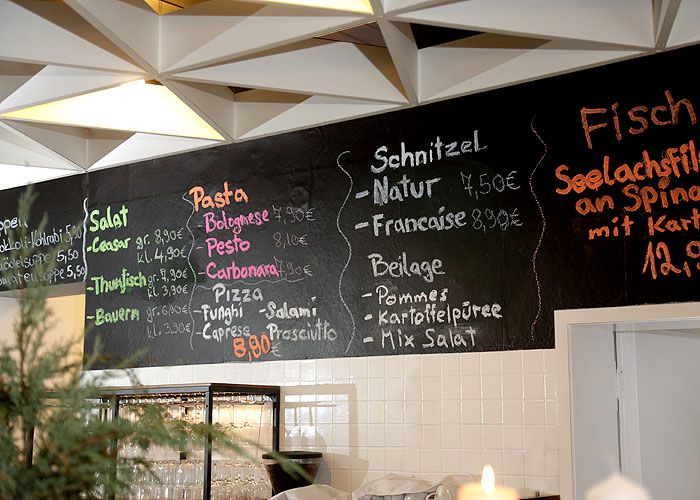 Salat
- Ceasar gr. 8,90€
kl. 4,90€
- Thunfisch gr. 7,90€
kl. 3,90€
- Bauern gr. 6,90€
kl. 3,90€
Pasta
- Bolognese 7,90€
- Pesto 8,10€
- Carbonara 7,90€
Pizza
- Funghi - Salami
- Caprese Prosciutto
8,90€
Schnitzel
- Natur 7,50€
- Francaise 8,90€
Beilage
- Pommes
- Kartoffelpüree
- Mix Salat
Fisch
Seelachsfil
an Spina
mit Kart
12,9